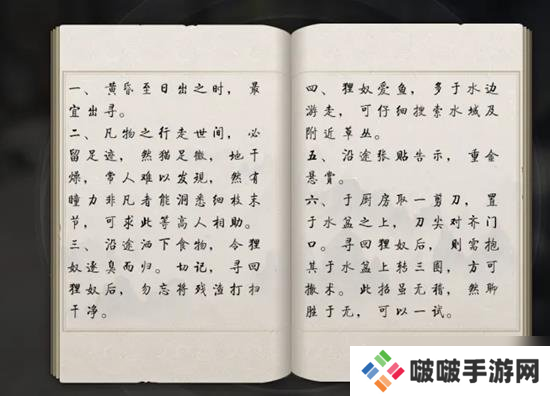 一、黄昏至日出之时，最
宜出寻。
二、凡物之行走世间，必
留足迹，然猫足微，地干
燥，常人难以发现，然有
瞳力非凡者能洞悉细枝末
节，可求此等高人相助。
三、沿途洒下食物，令狸
奴逐臭而归。切记，寻回
狸奴后，勿忘将残渣打扫
干净。
四、狸奴爱鱼，多于水边
游走，可仔细搜索水域及
附近草丛。
五、沿途张贴告示，重金
悬赏。
六、于厨房取一剪刀，置
于水盆之上，刀尖对齐门
口。寻回狸奴后，则需抱
其于水盆上转三圈，方可
撤术。此招虽无稽，然聊
胜于无，可以一试。
啵啵手游网